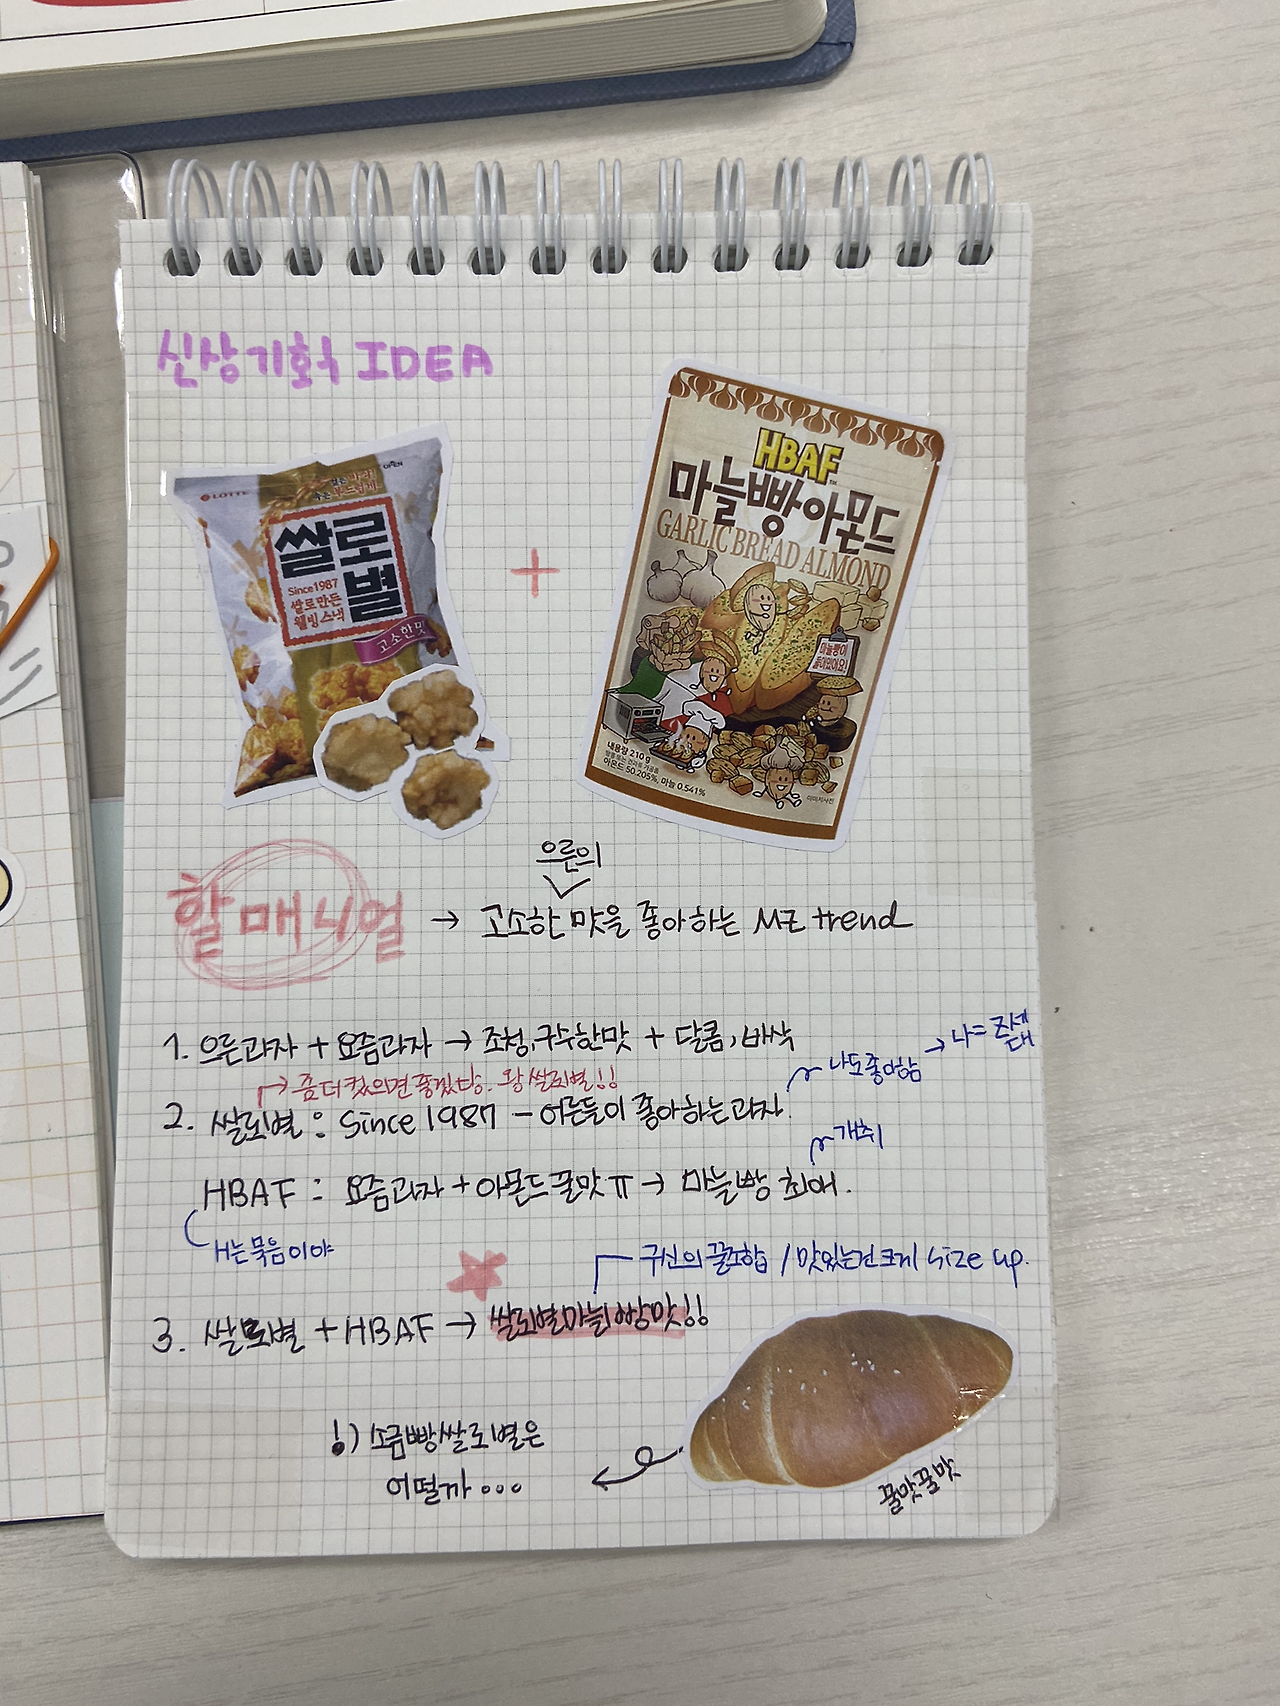 신상기획 IDEA
LOTTE
OPEN
쌀로별
Since1987
쌀로만든
웰빙스낵
고소한맛
+
HBAF
마늘빵아몬드
GARLIC BREAD ALMOND
마늘빵이
들어있어요!
내용량 210 g
아몬드 50.205%, 마늘 0.541%
이미지사진
으른의
할매니얼 → 고소한 맛을 좋아하는 MZ trend
1. 으른과자 + 요즘과자 → 조청,구수한맛 + 달콤, 바삭
→ 좀 더 컸으면 좋겠당. 왕 쌀로별!!
나도좋아함 → 나=
2. 쌀로별 : Since 1987 - 어른들이 좋아하는 과자.
개취
HBAF : 요즘과자 + 아몬드 꿀맛 ㅠ → 마늘빵 최애.
H는 묵음이야
귀신의 꿀조합 / 맛있는건 크게 size up.
3. 쌀로별 + HBAF → 쌀로별마늘빵맛!!
!) 소금빵쌀로별은
어떨까...
꿀맛꿀맛